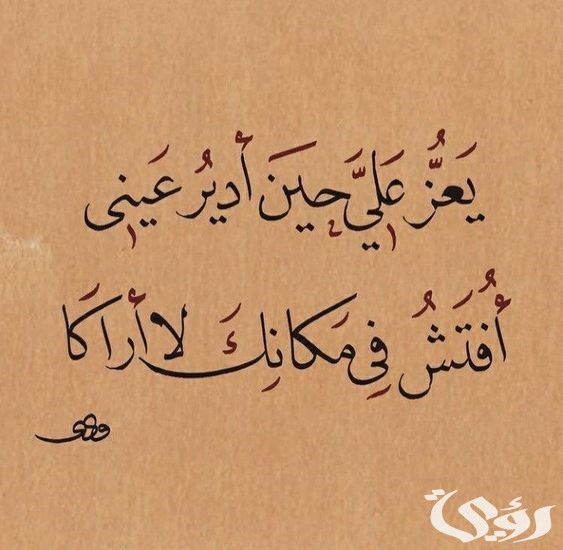 يَعَزُّ عَلَيَّ حينَ أُديرُ عَيني
أُفُتَشُ في مَكانِكَ لا أَراكَا
رؤية